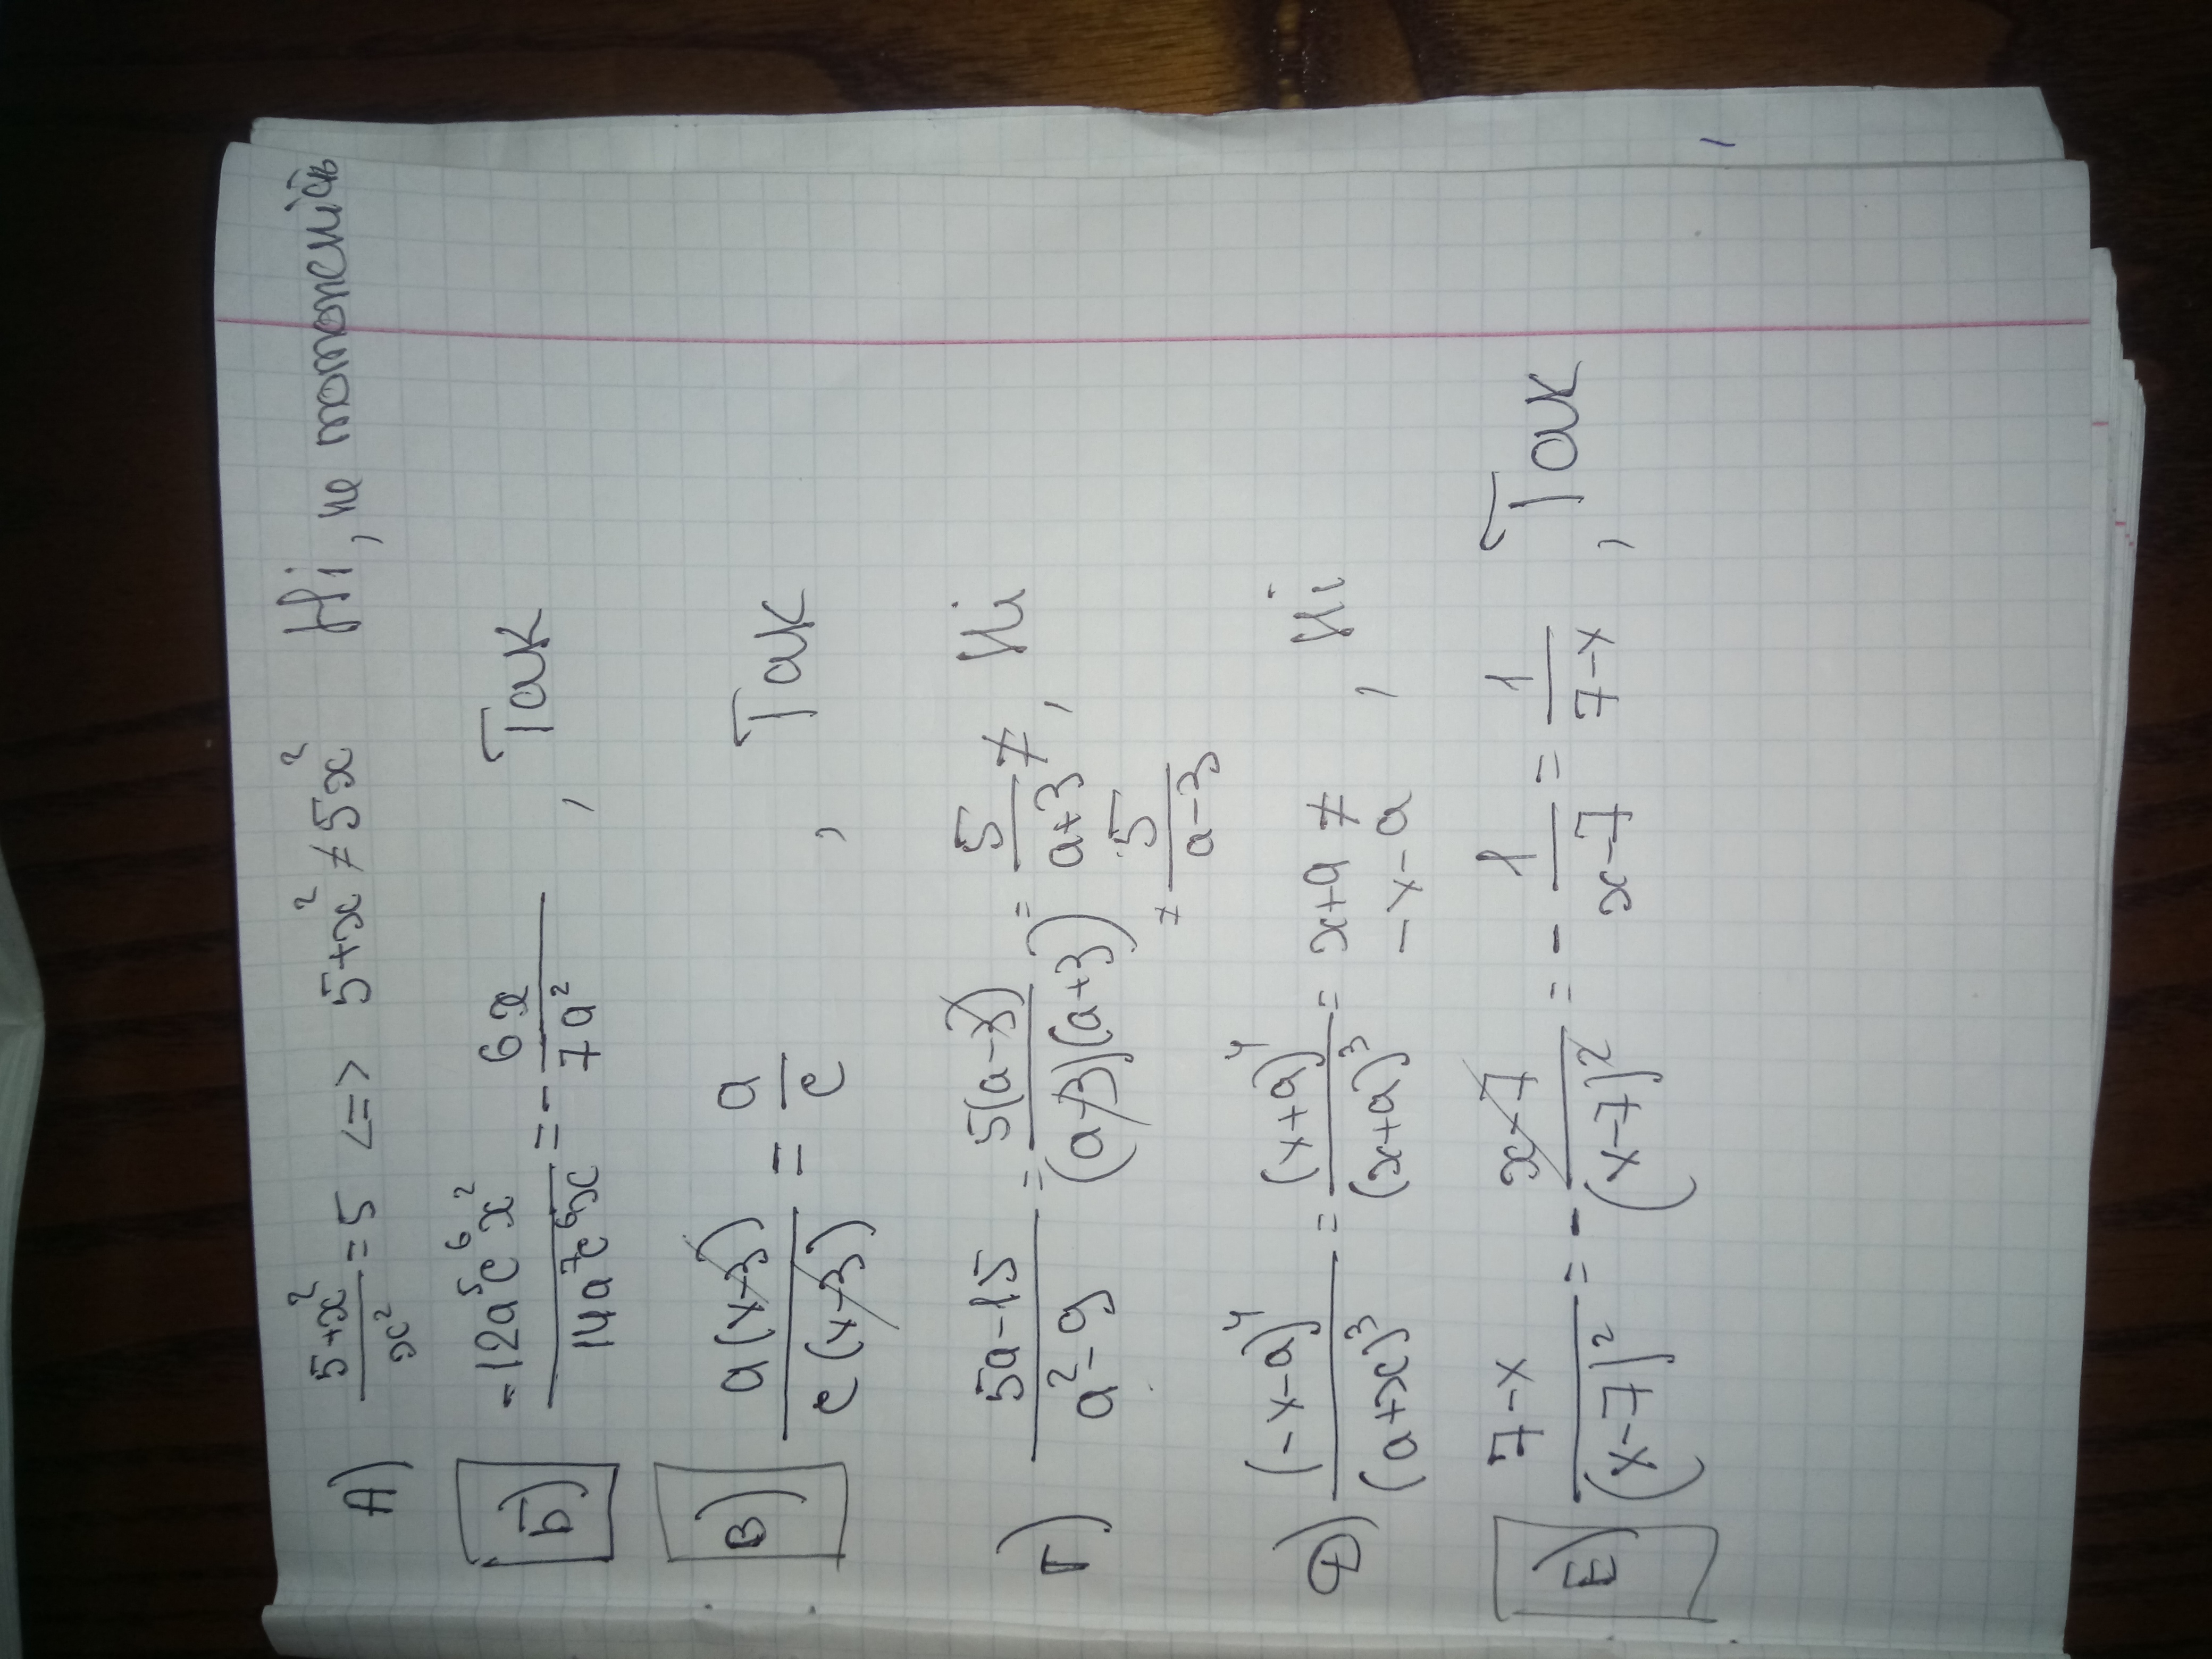 А) (5+x²)/x² = 5 <=> 5+x² ≠ 5x² Ні, не тотожність
Б) -12a⁵c⁶x² / 14a⁷c⁶x = - 6x / 7a² , Так
В) a(x-3) / c(x-3) = a/c , Так
Г) (5a-15) / (a²-9) = 5(a-3) / (a-3)(a+3) = 5/(a+3) ≠ , Ні
≠ 5/(a-3)
Д) (-x-a)⁴ / (a+x)³ = (x+a)⁴ / (x+a)³ = x+a ≠ , Ні
-x-a
Е) (7-x) / (x-7)² = - (x-7) / (x-7)² = - 1/(x-7) = 1/(7-x) , Так